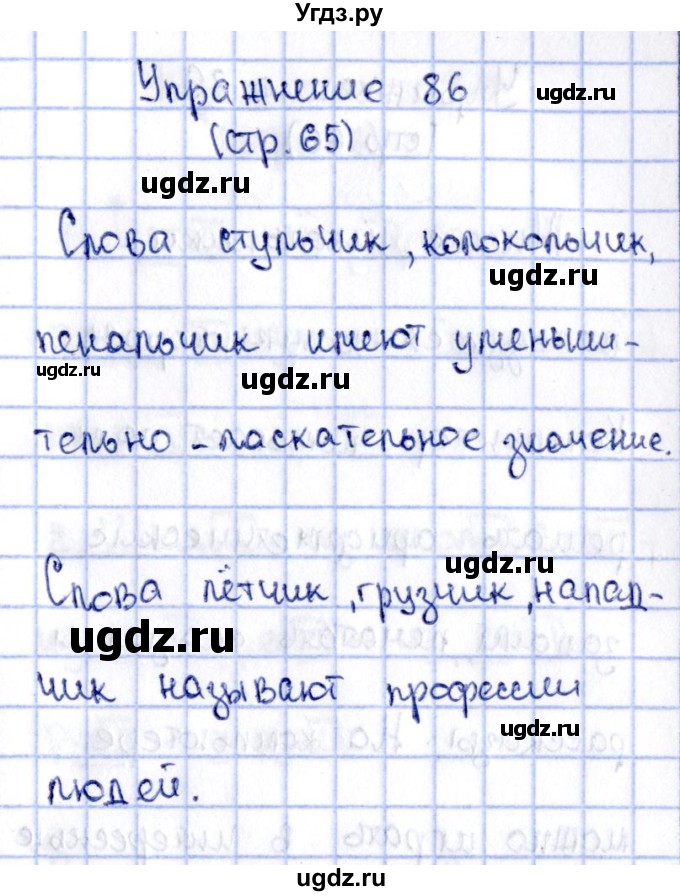 Угдз.ру
Упражнение 86
ugdz.ru
(стр.65)
ugdz.ru
Слова стульчик, колокольчик,
ugdz.ru
пенальчик имеют уменьши-
ugdz.ru
ugdz.ru
тельно-ласкательное значение.
ugdz.ru
Слова лётчик, грузчик, напад-
ugdz.ru
чик называют профессии
ugdz.ru
людей.
Угдз.ру